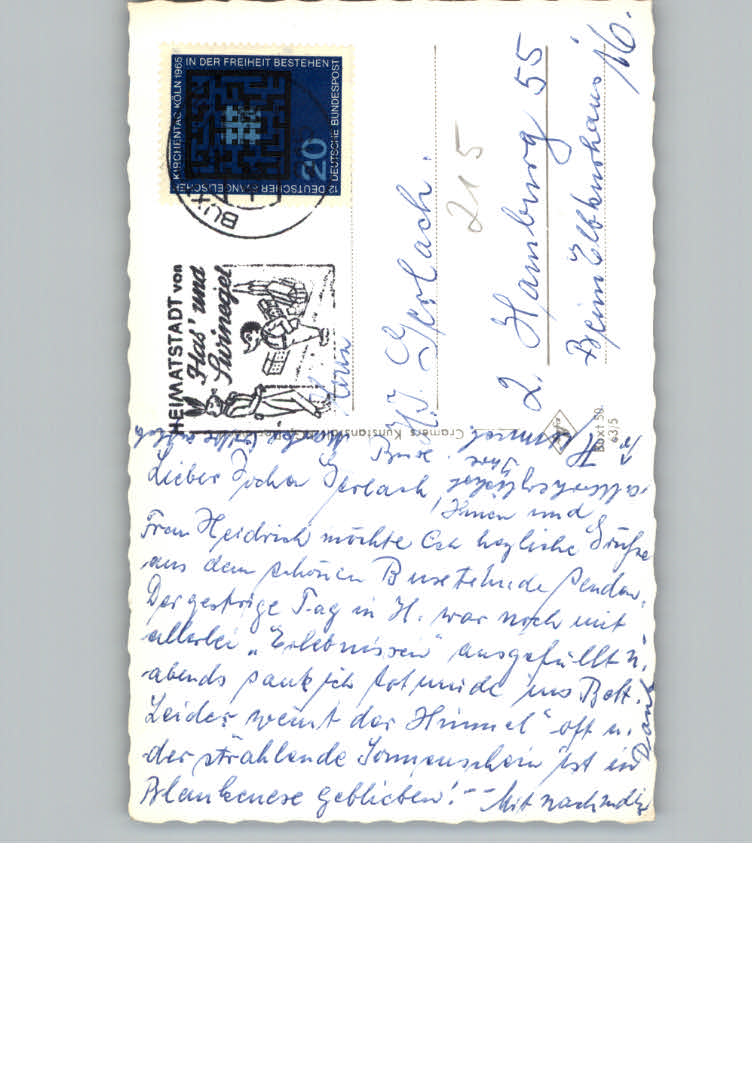 IN DER FREIHEIT BESTEHEN
KIRCHENTAG KÖLN 1965
12. DEUTSCHER EVANGELISCHER
DEUTSCHE BUNDESPOST
20
BUX
HEIMATSTADT von
Has' und
Swinegel
Herrn
Gerlach.
215
2. Hamburg 55
Beim Elbkurhaus
16.
Cramers Kunstanstalt
Bo xt 50
63/5
Lieber Jochen Gerlach, Ihnen und
Frau Heidrich möchte ich herzliche Grüße
aus dem schönen Buxtehude senden.
Der gestrige Tag in H. war noch mit
allerlei „Erlebnissen" ausgefüllt u.
abends sank ich totmüde ins Bett.
Leider weint der Himmel" oft u.
der strahlende Sonnenschein ist in
Blankenese geblieben! -- Mit nochmalig.
Dank